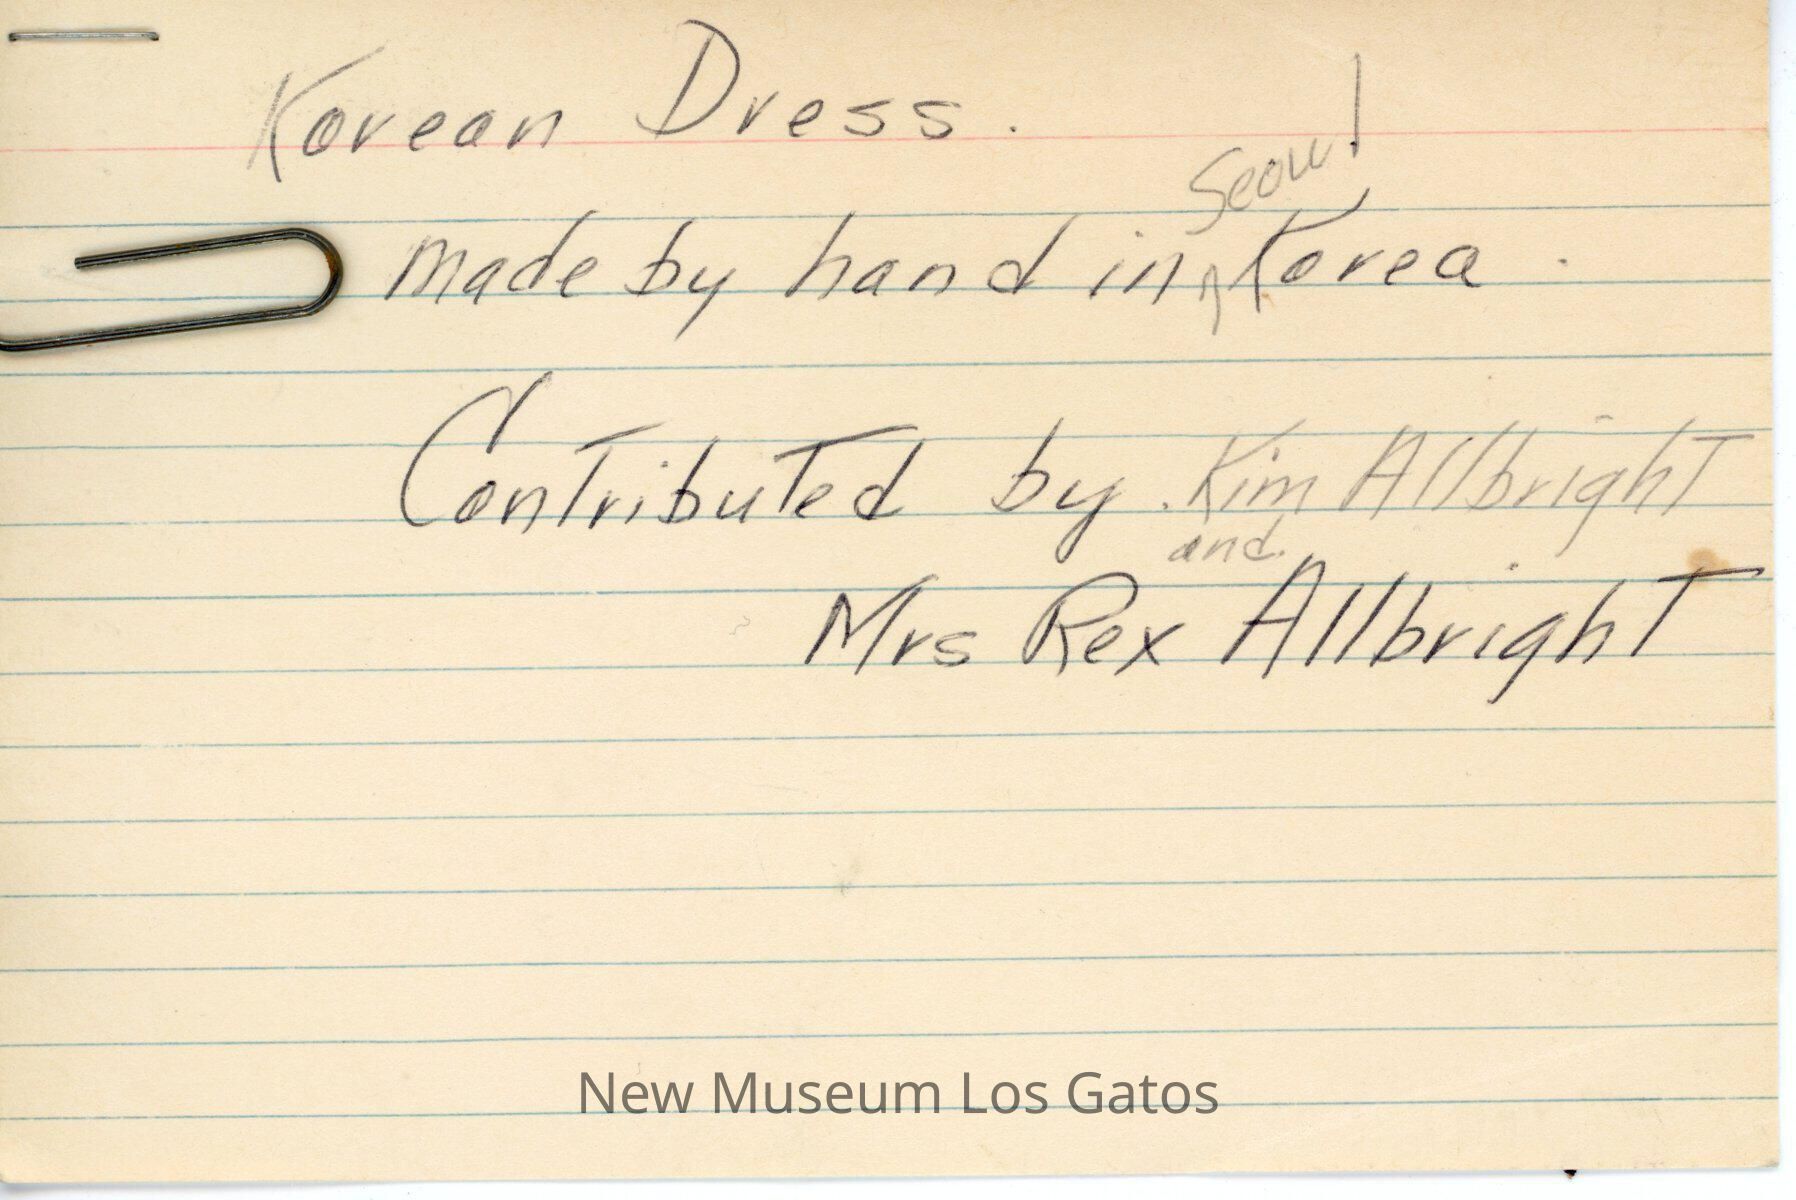 Korean Dress.
Seoul
made by hand in Korea.
Contributed by. Kim Allbright
and.
Mrs Rex Allbright
New Museum Los Gatos